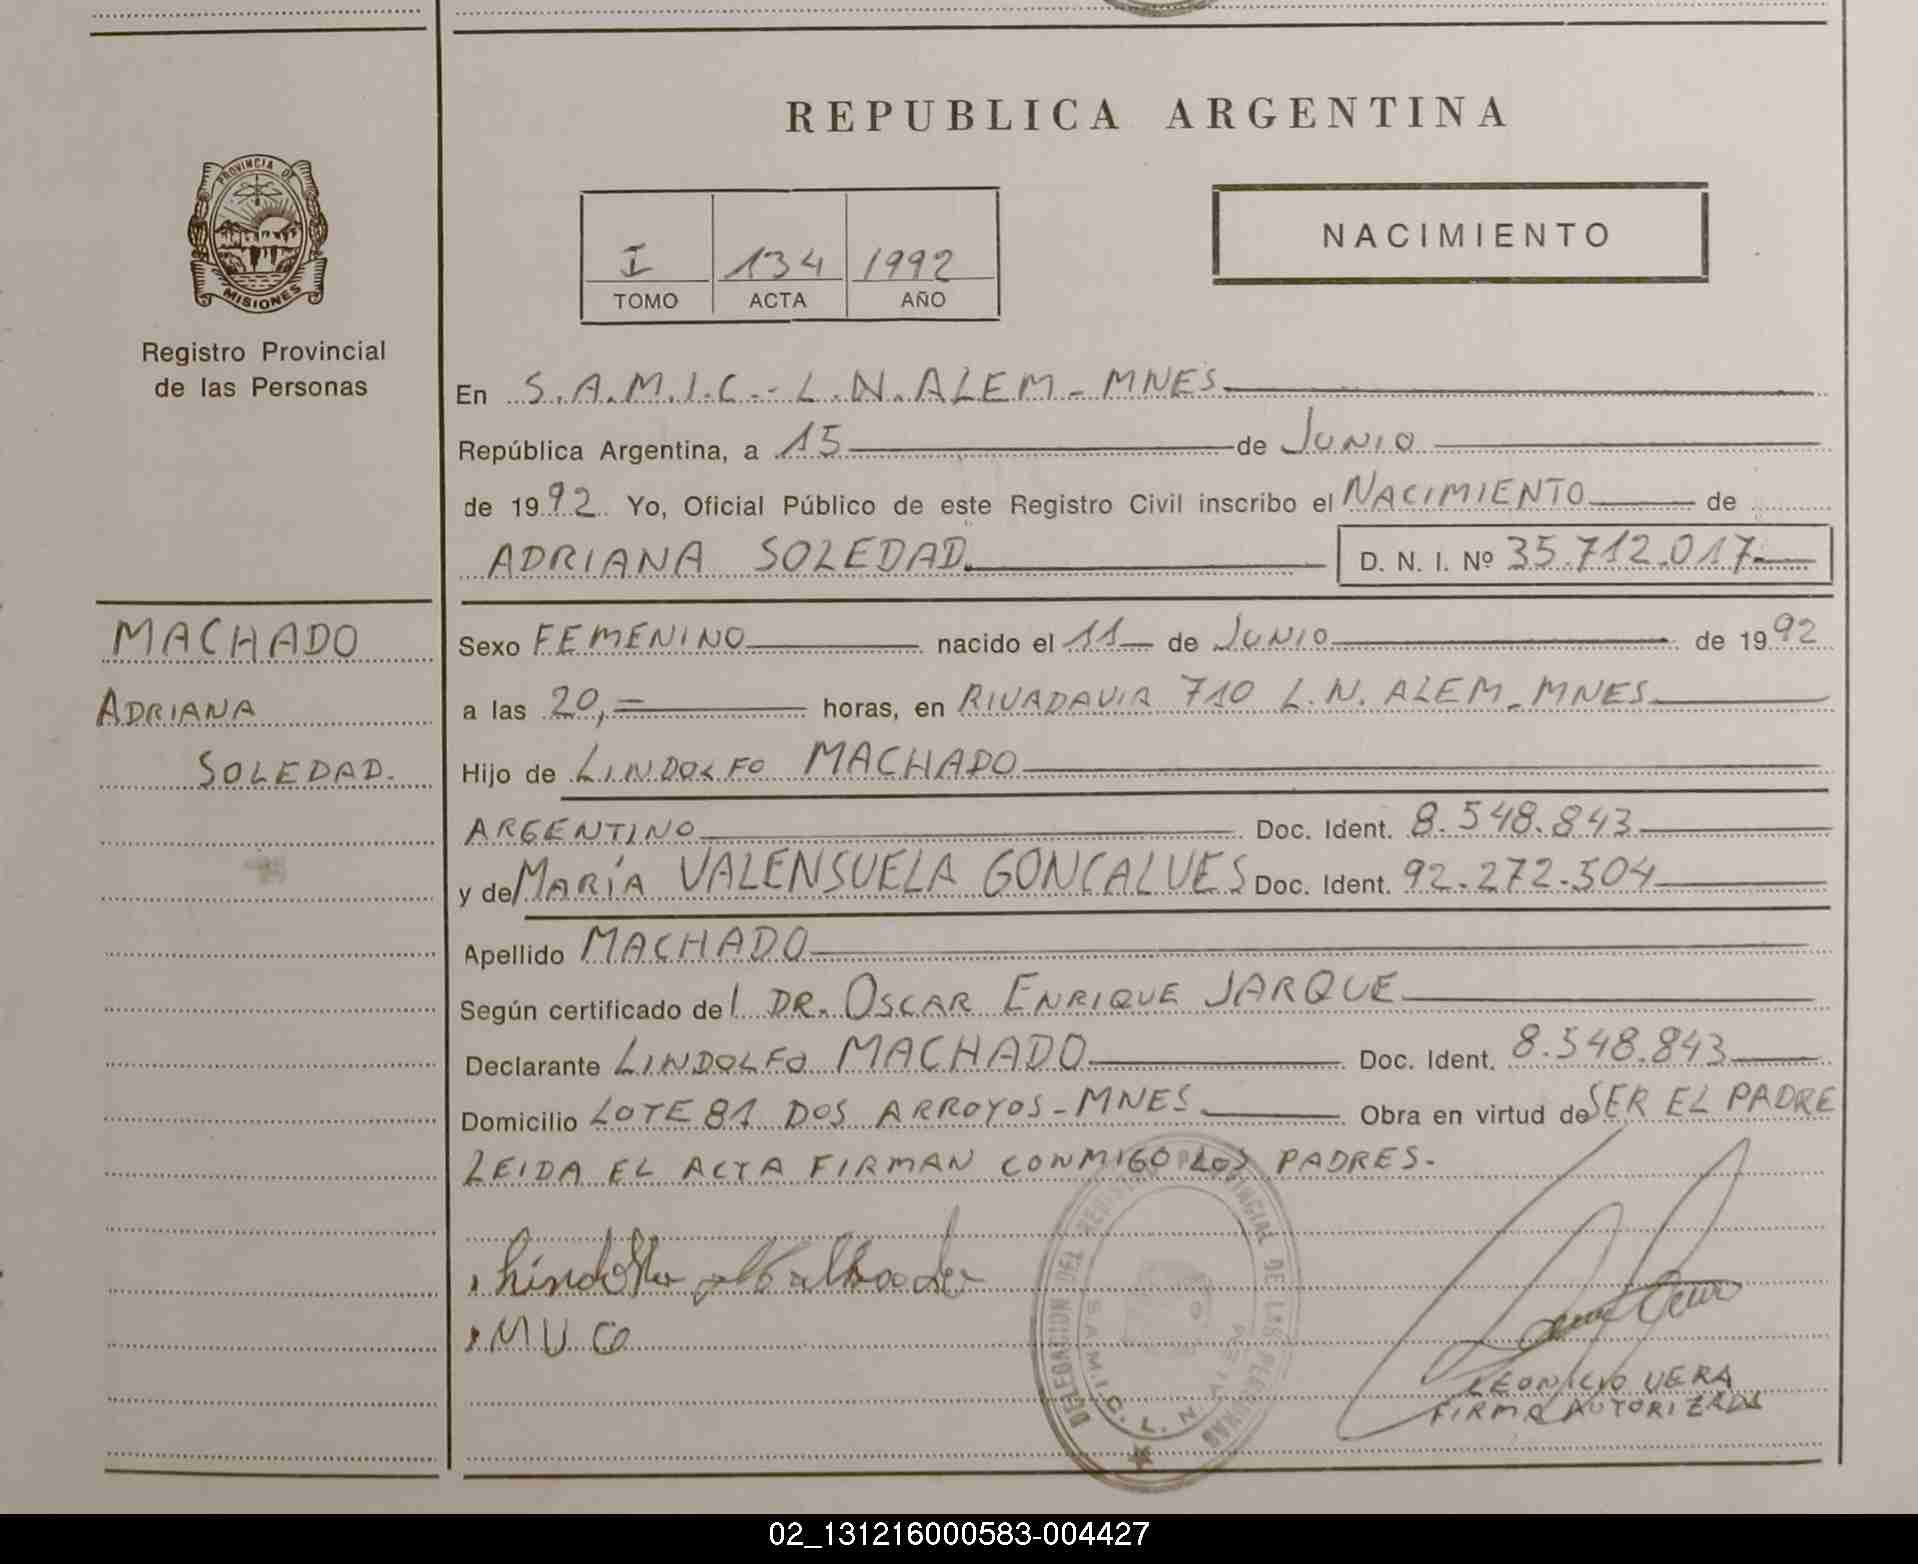 REPUBLICA ARGENTINA
PROVINCIA DE
MISIONES
Registro Provincial
de las Personas
NACIMIENTO
I 134 1992
TOMO ACTA AÑO
En S.A.M.I.C.- L.N.ALEM - MNES
República Argentina, a 15 de JUNIO
de 1992 Yo, Oficial Público de este Registro Civil inscribo el NACIMIENTO de
ADRIANA SOLEDAD. D. N. I. Nº 35.712.017-
MACHADO
ADRIANA
SOLEDAD.
Sexo FEMENINO nacido el 11 de JUNIO de 1992
a las 20,= horas, en RIVADAVIA 710 L.N. ALEM - MNES
Hijo de LINDOLFO MACHADO
ARGENTINO Doc. Ident. 8.548.843
y de MARÍA VALENSUELA GONCALVES Doc. Ident. 92.272.504
Apellido MACHADO
Según certificado del DR. OSCAR ENRIQUE JARQUE
Declarante LINDOLFO MACHADO Doc. Ident. 8.548.843
Domicilio LOTE 81 DOS ARROYOS - MNES Obra en virtud de SER EL PADRE
LEIDA EL ACTA FIRMAN CONMIGO LOS PADRES.
M V G
DELEGACION DEL REGISTRO PROVINCIAL DE LAS PERSONAS
S.A.M.I.C. L. N.
LEONICIO VERA
FIRMA AUTORIZADA
02_131216000583-004427